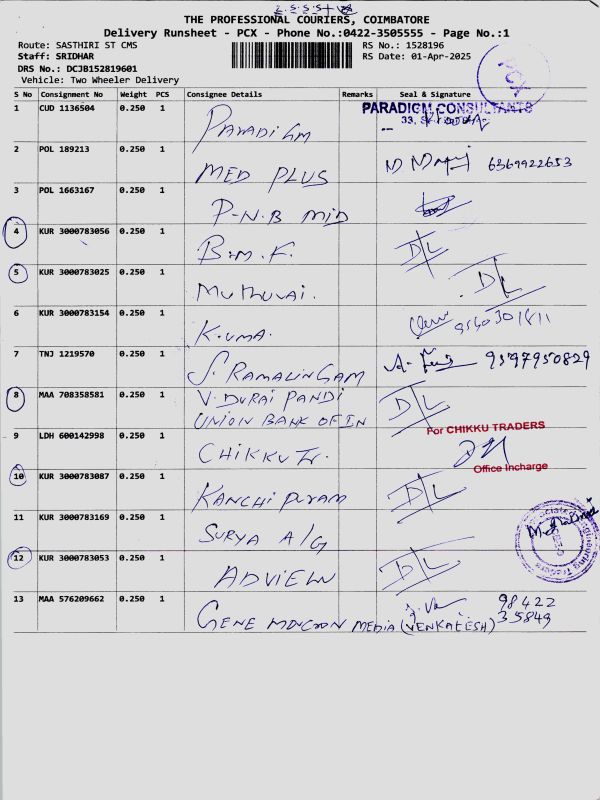 THE PROFESSIONAL COURIERS, COIMBATORE
Delivery Runsheet - PCX - Phone No.:0422-3505555 - Page No.:1
Route: SASTHIRI ST CMS
RS No.: 1528196
Staff: SRIDHAR
RS Date: 01-Apr-2025
DRS No.: DCJB152819601
Vehicle: Two Wheeler Delivery
PCX
S No Consignment No Weight PCS Consignee Details Remarks Seal & Signature
1 CUD 1136504 0.250 1 PARADIGM PARADIGM CONSULTANTS
33,
2 POL 189213 0.250 1 MED PLUS 6369922653
3 POL 1663167 0.250 1 P-N.B MID
4 KUR 3000783056 0.250 1 B.M.F. D/L
5 KUR 3000783025 0.250 1 MUTHUVAI. D/L
6 KUR 3000783154 0.250 1 K.UMA. 9560301811
7 TNJ 1219570 0.250 1 S. RAMALINGAM 9597950829
8 MAA 708358581 0.250 1 V. DURAI PANDI D/L
UNION BANK OF IN
9 LDH 600142998 0.250 1 CHIKKU Tr. For CHIKKU TRADERS
Office Incharge
10 KUR 3000783087 0.250 1 KANCHIPURAM D/L
11 KUR 3000783169 0.250 1 SURYA A/G
12 KUR 3000783053 0.250 1 ADVIEW D/L
13 MAA 576209662 0.250 1 GENE MONCOON MEDIA (VENKATESH) 98422
35849